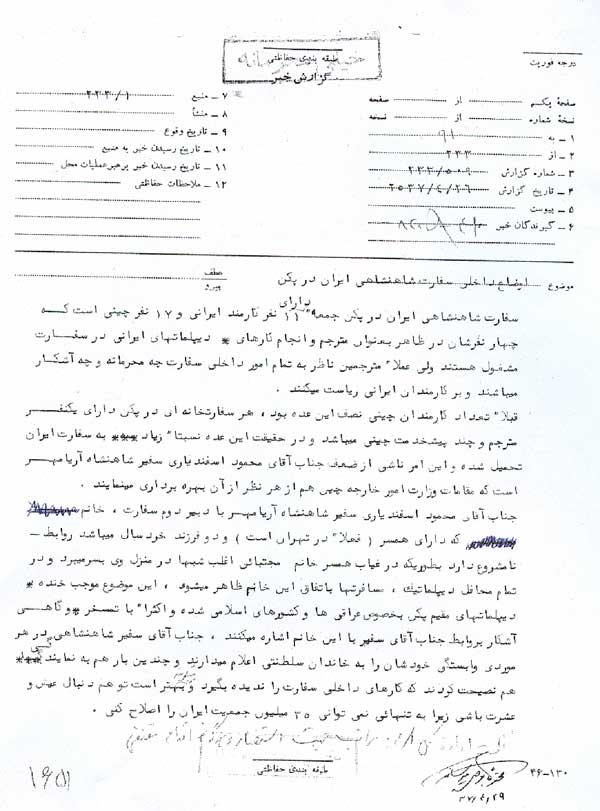 طبقه بندی حفاظتی
گزارش خبر
درجه فوریت
صفحه یکم از صفحه
نسخه شماره از نسخه
۱ ـ به
۲ ـ از ۳۳۳
۳ ـ شماره گزارش
۴ ـ تاریخ گزارش
۵ ـ پیوست
۶ ـ گیرندگان خبر
۷ ـ منبع
۸ ـ منشأ
۹ ـ تاریخ وقوع
۱۰ ـ تاریخ رسیدن خبر به منبع
۱۱ ـ تاریخ رسیدن خبر برهبرعملیات محل
۱۲ ـ ملاحظات حفاظتی
موضوع اوضاع داخلی سفارت شاهنشاهی ایران در پکن
عطف
پیرو
سفارت شاهنشاهی ایران در پکن جمعا" دارای ۱۱ نفر کارمند ایرانی و ۱۷ نفر چینی است که
چهار نفرشان در ظاهر بعنوان مترجم و انجام کارهای دیپلماتهای ایرانی در سفارت
مشغول هستند ولی عملا" مترجمین ناظر به تمام امور داخلی سفارت چه محرمانه و چه آشکار
میباشند و بر کارمندان ایرانی ریاست میکنند .
قبلا" تعداد کارمندان چینی نصف این عده بود ، هر سفارتخانه ای در پکن دارای یکنفر
مترجم و چند پیشخدمت چینی میباشد و در حقیقت این عده نسبتا" زیاد به سفارت ایران
تحمیل شده و این امر ناشی از ضعف جناب آقای محمود اسفندیاری سفیر شاهنشاه آریامهر
است که مقامات وزارت امور خارجه چین هم از هر نظر از آن بهره برداری مینمایند .
جناب آقای محمود اسفندیاری سفیر شاهنشاه آریامهر با دبیر دوم سفارت ، خانم
که دارای همسر ( فعلا" در تهران است ) و دو فرزند خردسال میباشد روابط ـ
نامشروع دارد بطوریکه در غیاب همسر خانم مجتبائی اغلب شبها در منزل وی بسرمیبرد و در
تمام محافل دیپلماتیک ، مسافرتها باتفاق این خانم ظاهر میشود ، این موضوع موجب خنده
دیپلماتهای مقیم پکن بخصوص عراقی ها و کشورهای اسلامی شده و اکثرا" با تمسخر و گاهی
آشکار بروابط جناب آقای سفیر با این خانم اشاره میکنند ، جناب آقای سفیر شاهنشاهی در هر
موردی وابستگی خودشان را به خاندان سلطنتی اعلام میدارند و چندین بار هم به نمایندگی
هم نصیحت کردند که کارهای داخلی سفارت را ندیده بگیرد و بهتر است تو هم دنبال عیش و
عشرت باشی زیرا به تنهائی نمی توانی ۳۵ میلیون جمعیت ایران را اصلاح کنی .
طبقه بندی حفاظتی
۴۶-۱۳۰
۳۷/۴/۲۹